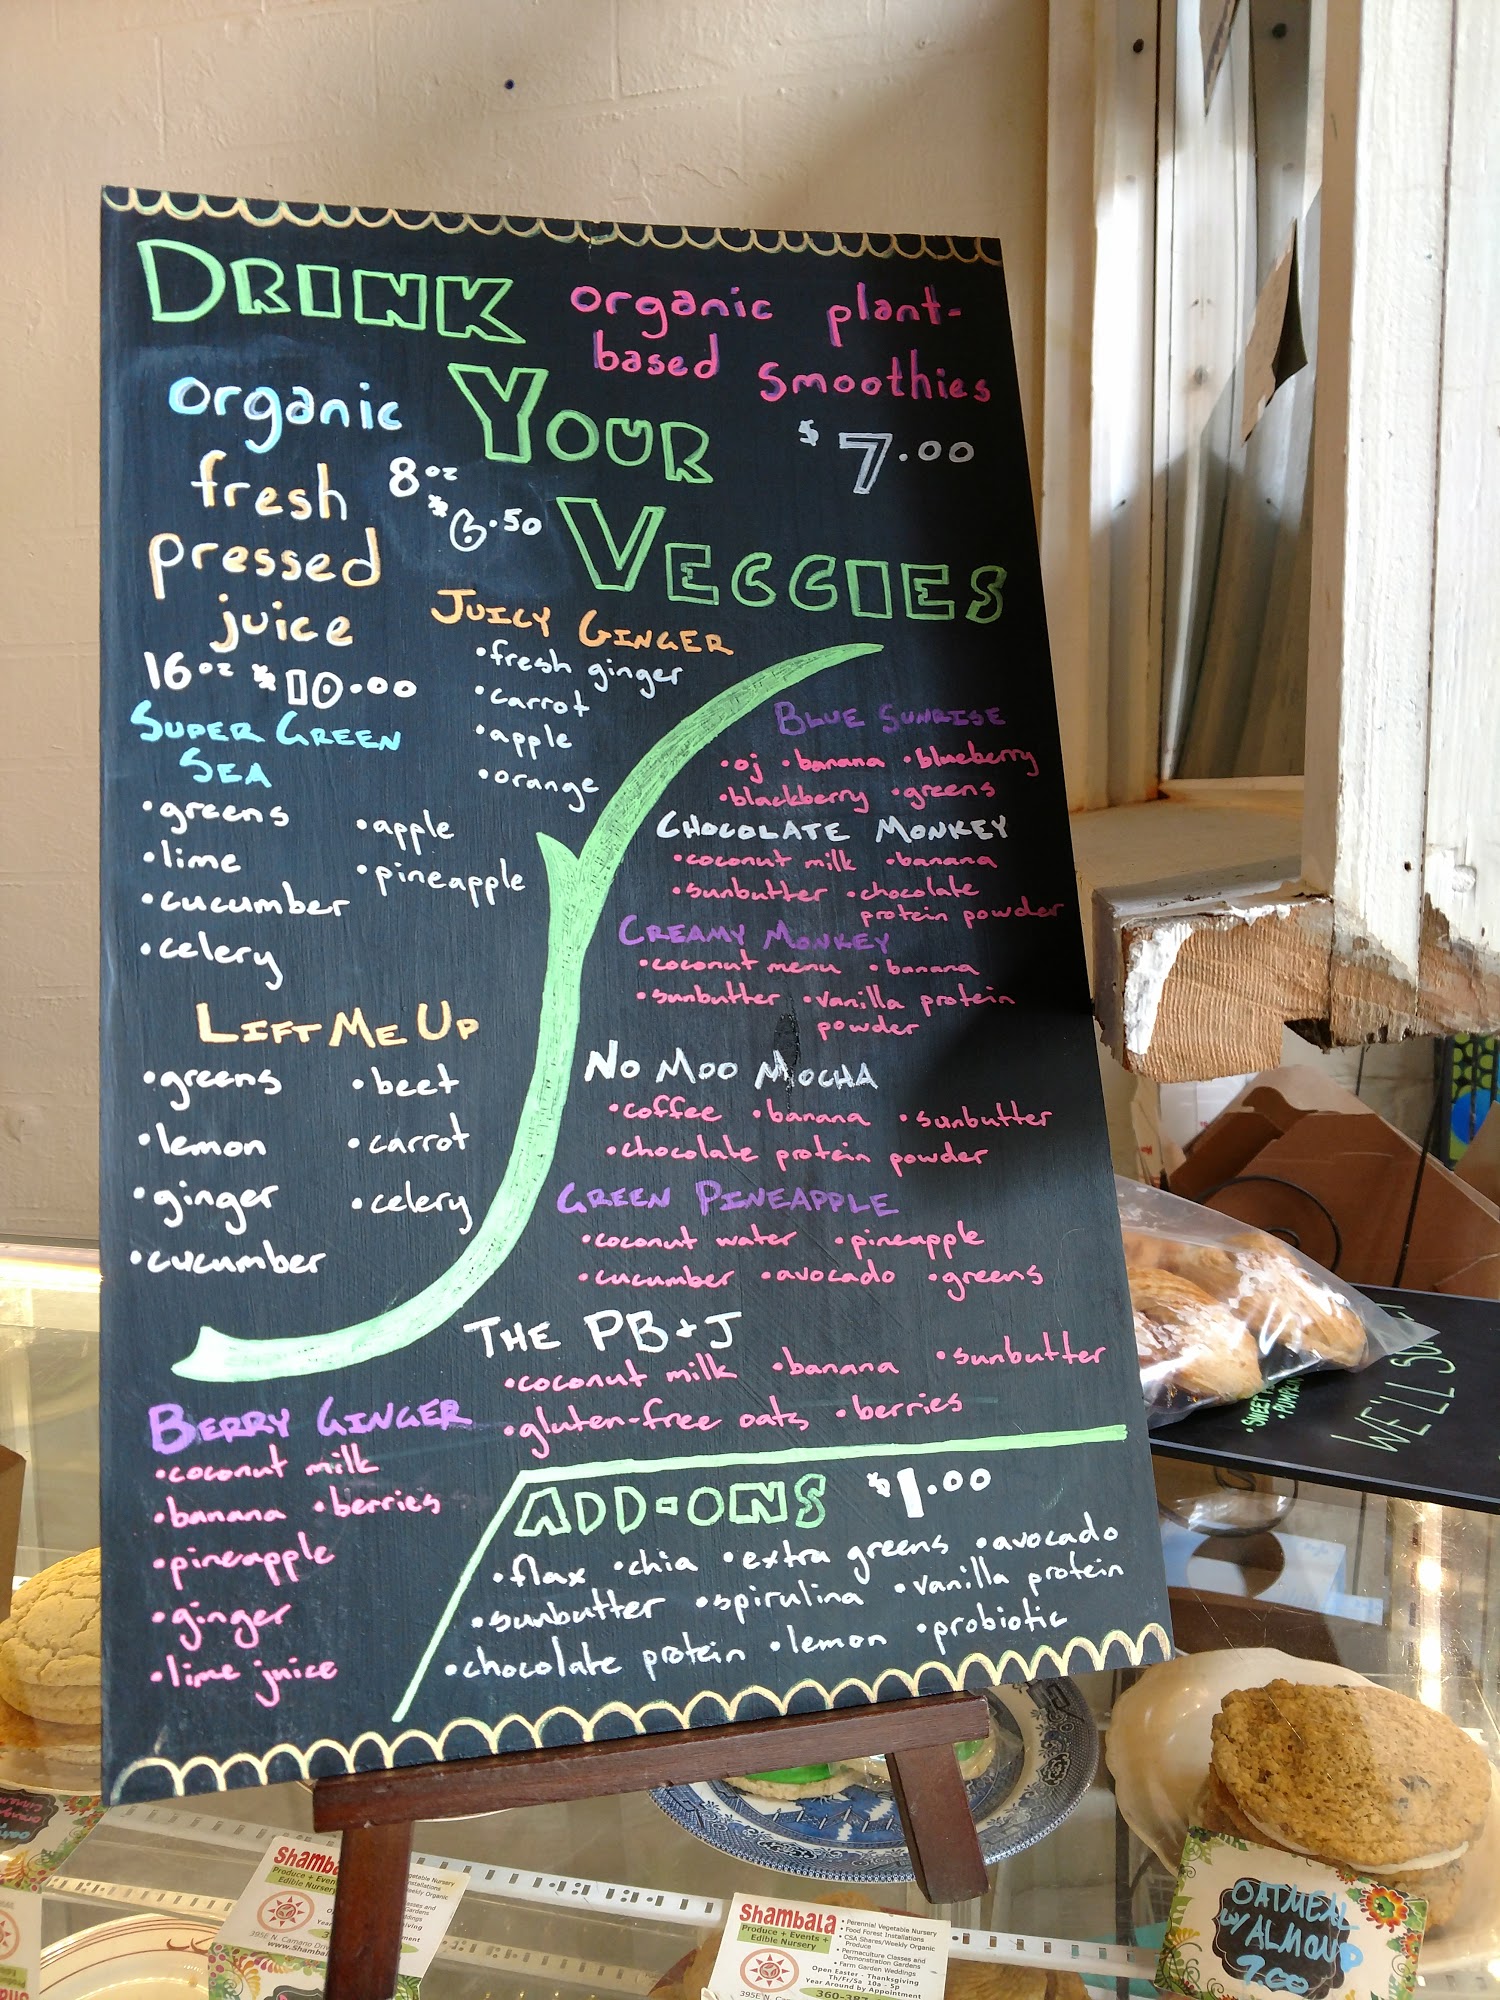 DRINK
YOUR
VEGGIES
organic
fresh
pressed
juice
8oz
$6.50
16oz $10.00
SUPER GREEN
SEA
•greens
•lime
•cucumber
•celery
•apple
•pineapple
JUICY GINGER
•fresh ginger
•carrot
•apple
•orange
LIFT ME UP
•greens
•lemon
•ginger
•cucumber
•beet
•carrot
•celery
organic plant-
based smoothies
$7.00
BLUE SUNRISE
•oj •banana •blueberry
•blackberry •greens
CHOCOLATE MONKEY
•coconut milk •banana
•sunbutter •chocolate
protein powder
CREAMY MONKEY
•coconut menu •banana
•sunbutter •vanilla protein
powder
NO MOO MOCHA
•coffee •banana •sunbutter
•chocolate protein powder
GREEN PINEAPPLE
•coconut water •pineapple
•cucumber •avocado •greens
THE PB+J
•coconut milk •banana •sunbutter
•gluten-free oats •berries
BERRY GINGER
•coconut milk
•banana •berries
•pineapple
•ginger
•lime juice
ADD-ONS $1.00
•flax •chia •extra greens •avocado
•sunbutter •spirulina •vanilla protein
•chocolate protein •lemon •probiotic
•SWEET
•PUMPKIN
WE'LL
Shambala
Produce + Events +
Edible Nursery
395E N. Camano
Shambala
Produce + Events +
Edible Nursery
• Perennial Vegetable Nursery
• Food Forest Installations
• CSA Shares/Weekly Organic
Produce
• Permaculture Classes and
Demonstration Gardens
• Farm Garden Weddings
Open Easter - Thanksgiving
Th/Fr/Sa 10a - 5p
Year Around by Appointment
360-387
395E N.
OATMEAL
w/ALMOND